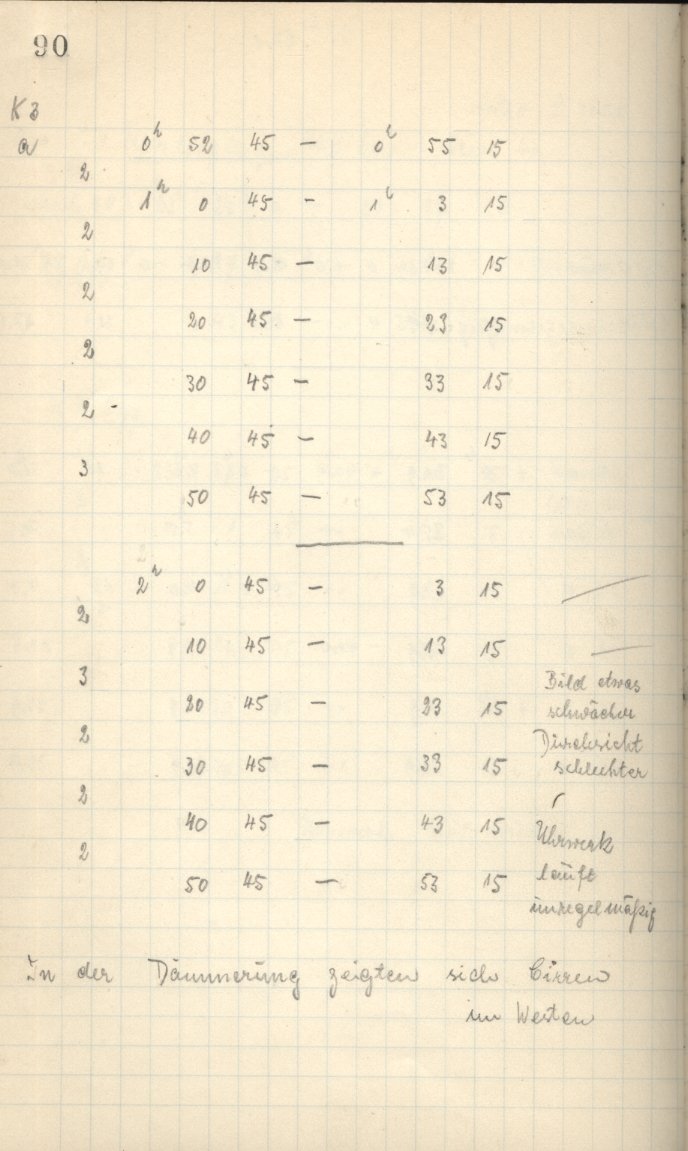 90
K3
a 0h 52 45 – 0h 55 15
2
1h 0 45 – 1h 3 15
2
10 45 – 13 15
2
20 45 – 23 15
2
30 45 – 33 15
2
40 45 – 43 15
3
50 45 – 53 15
2h 0 45 – 3 15
2
10 45 – 13 15
3
Bild etwas
20 45 – 23 15 schwächer
2 Durchsicht
30 45 – 33 15 schlechter
2
40 45 – 43 15 Uhrwerk
2 läuft
50 45 – 53 15
unregelmäßig
In der Dämmerung zeigten sich Cirren
im Westen